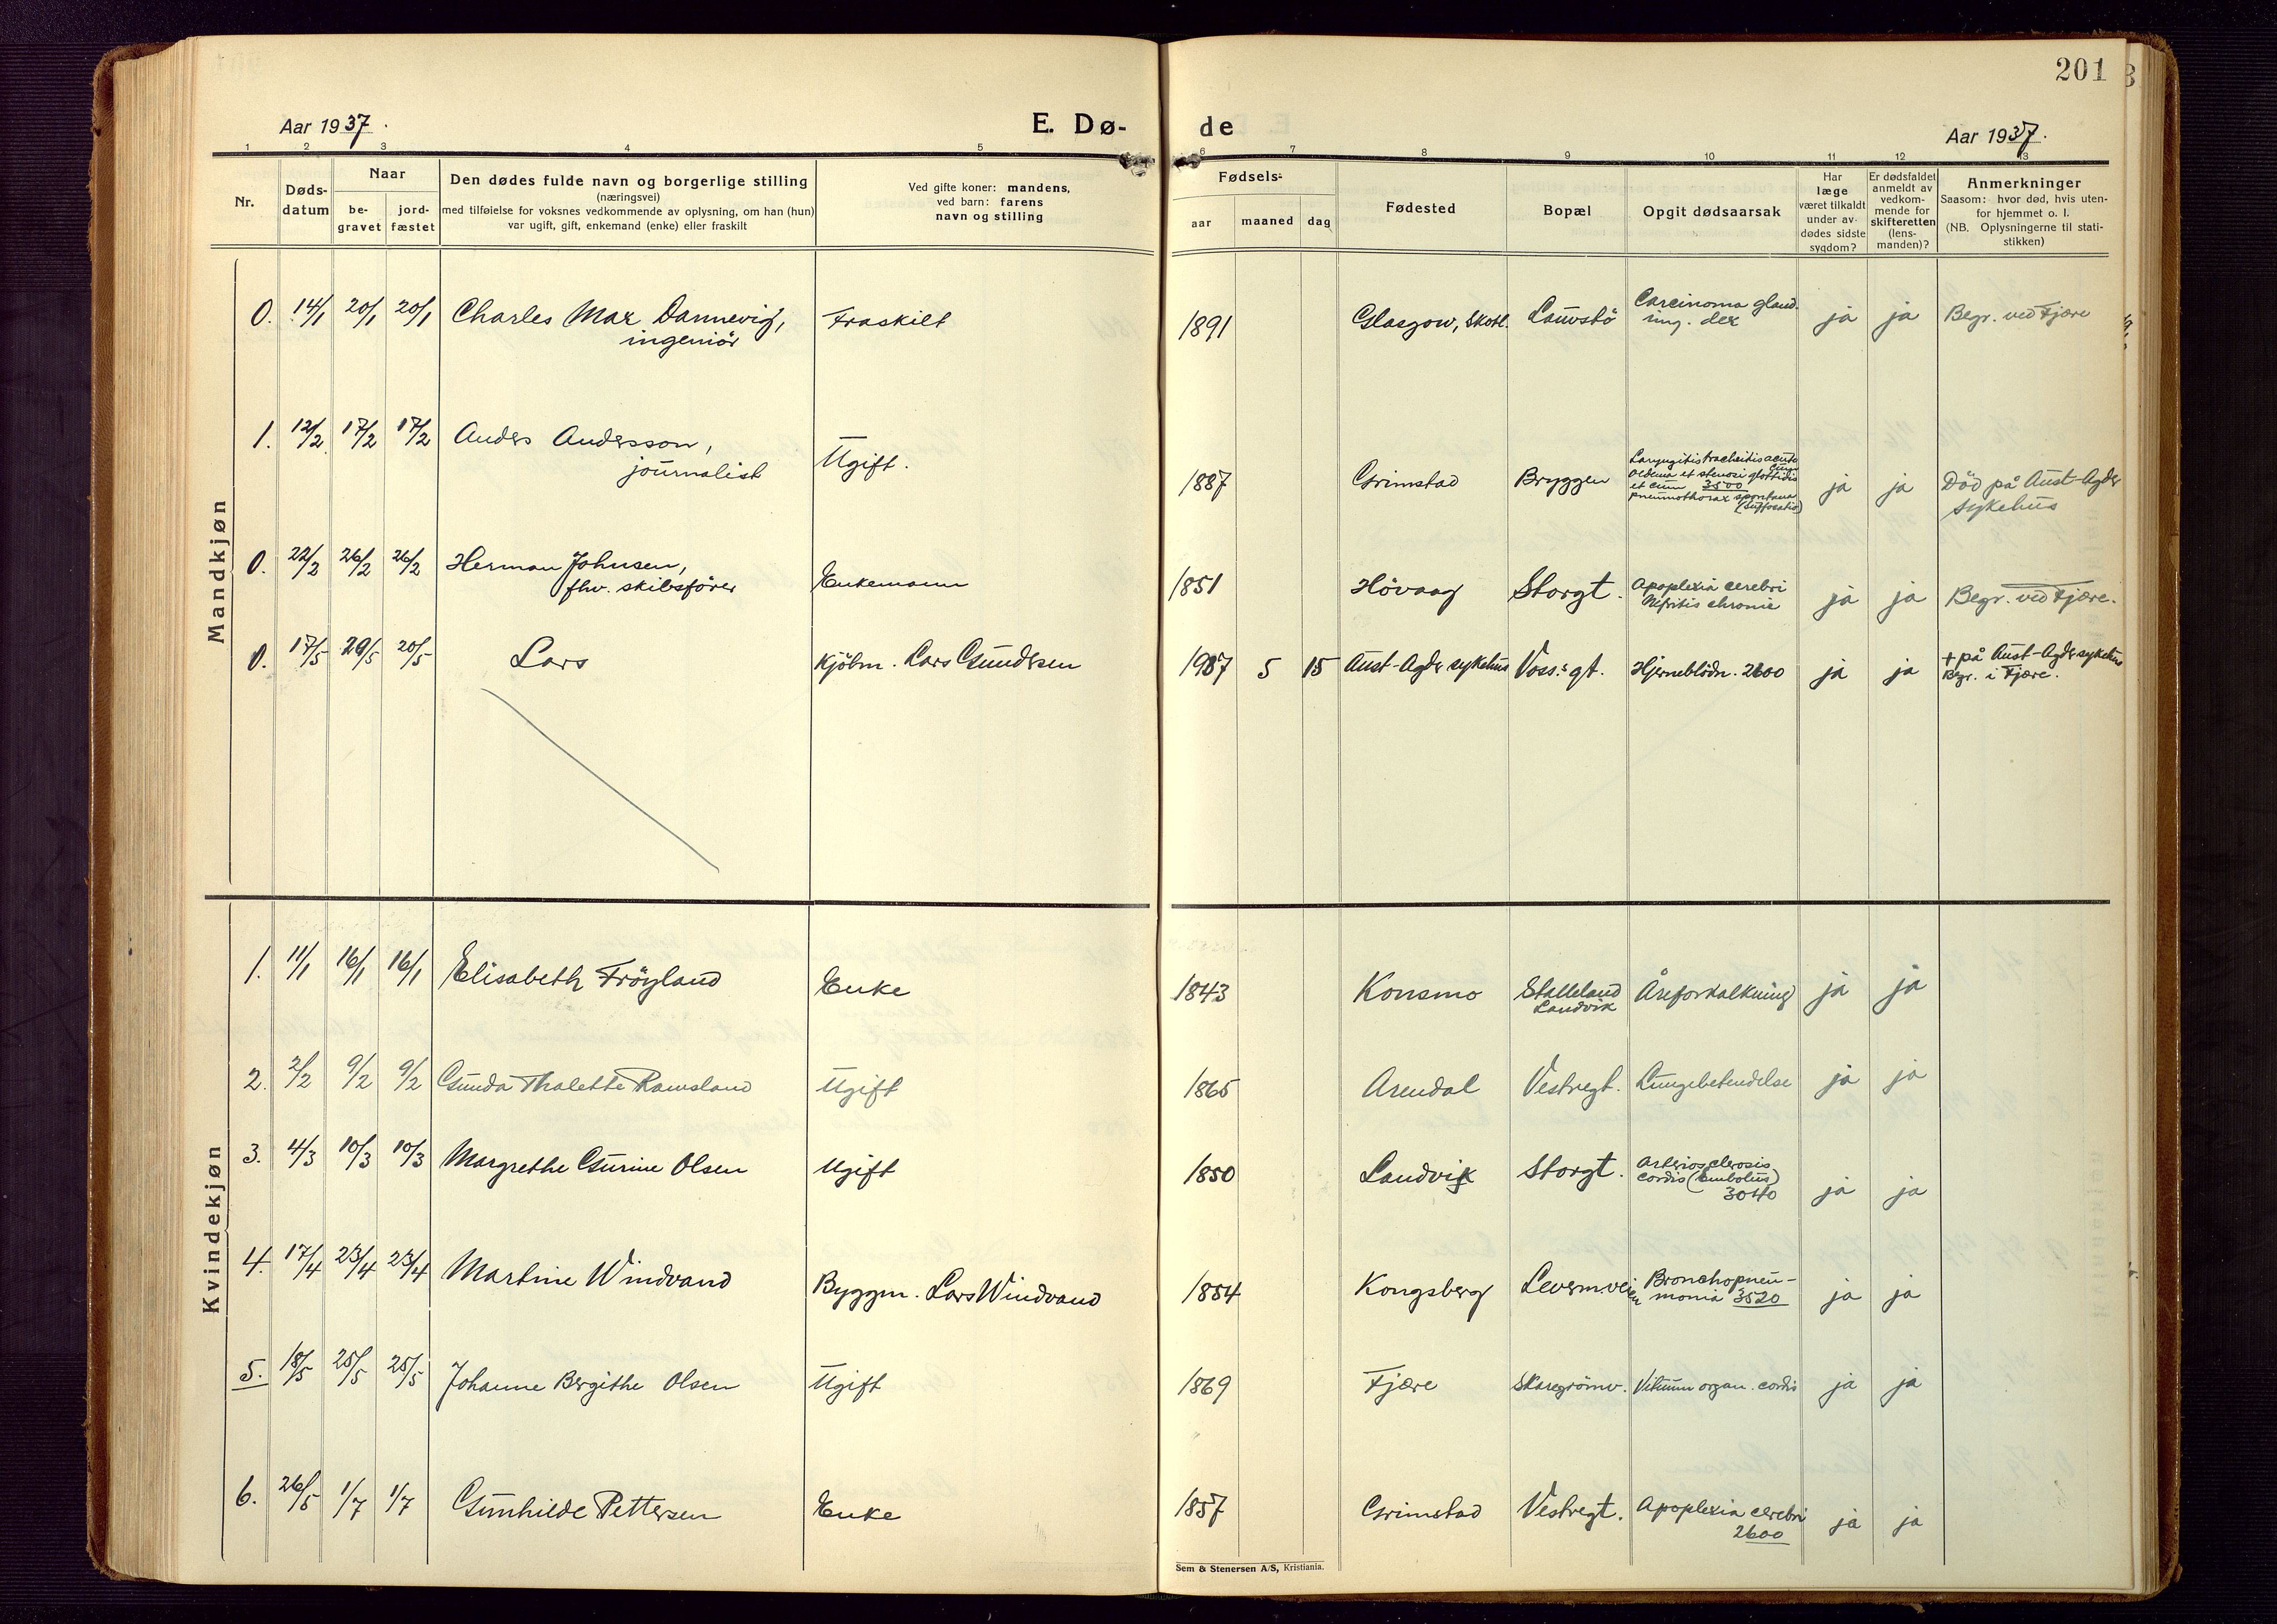 201
Aar 1937.
E. Dø-
de
Aar 1937.
1 2 3 4 5 6 7 8 9 10 11 12 13
Nr.
Døds-
datum
Naar
be-
gravet
jord-
fæstet
Den dødes fulde navn og borgerlige stilling
(næringsvei)
med tilføielse for voksnes vedkommende av oplysning, om han (hun)
var ugift, gift, enkemand (enke) eller fraskilt
Ved gifte koner: mandens,
ved barn: farens
navn og stilling
Fødsels-
aar
maaned
dag
Fødested
Bopæl
Opgit dødsaarsak
Har
læge
været tilkaldt
under av-
dødes sidste
sygdom?
Er dødsfaldet
anmeldt av
vedkom-
mende for
skifteretten
(lens-
manden)?
Anmerkninger
Saasom: hvor død, hvis uten-
for hjemmet o. l.
(NB. Oplysningerne til stati-
stikken)
Mandkjøn
0. 14/1 20/1 20/1 Charles Max Dannevig, Fraskilt 1891 Glasgow, Skotl. Lauvstö Carcinoma gland. ja ja Begr. ved Fjære
ingeniör ing. dex
1. 12/2 17/2 17/2 Anders Andersson, Ugift. 1887 Grimstad Bryggen Laryngitis tracheitis acuta cum ja ja Död på Aust-Agder
journalist oedema et stenosi glottidis sykehus
et cum 3500
pneumothorax spontana
(Suffocatio)
0. 22/2 26/2 26/2 Herman Johnsen, Enkemann 1851 Hövaag Storgt. Apoplexia cerebri ja ja Begr. ved Fjære.
fhv. skibsförer Nefritis chronic
0. 17/5 20/5 20/5 Lars Kjöbm. Lars Gundersen 1937 5 15 Aust-Agder sykehus Voss's gt. Hjerneblödn. 2600 ja ja + på Aust-Agder sykehus
Begr. i Fjære.
Kvindekjøn
1. 11/1 16/1 16/1 Elisabeth Fröyland Enke 1843 Konsmo Stalleland Åreforkalkning ja ja
Landvik
2. 2/2 9/2 9/2 Gunda Thalette Ramsland Ugift 1865 Arendal Vestregt. Lungebetendelse ja ja
3. 4/3 10/3 10/3 Margrethe Gurine Olsen Ugift 1850 Landvik Storgt. Arteriosclerosis ja ja
cordis (embolus)
3040
4. 17/4 23/4 23/4 Martine Windvand Byggm. Lars Windvand 1854 Kongsberg Levermveien Bronchopneu- ja ja
monia 3520
5. 18/5 25/5 25/5 Johanne Bergithe Olsen Ugift 1869 Fjære Skaregrömv. Vitium organ. cordis ja ja
6. 26/5 1/7 1/7 Gunhilde Pettersen Enke 1857 Grimstad Vestregt. Apoplexia cerebri ja ja
2600
Sem & Stenersen A/S, Kristiania.